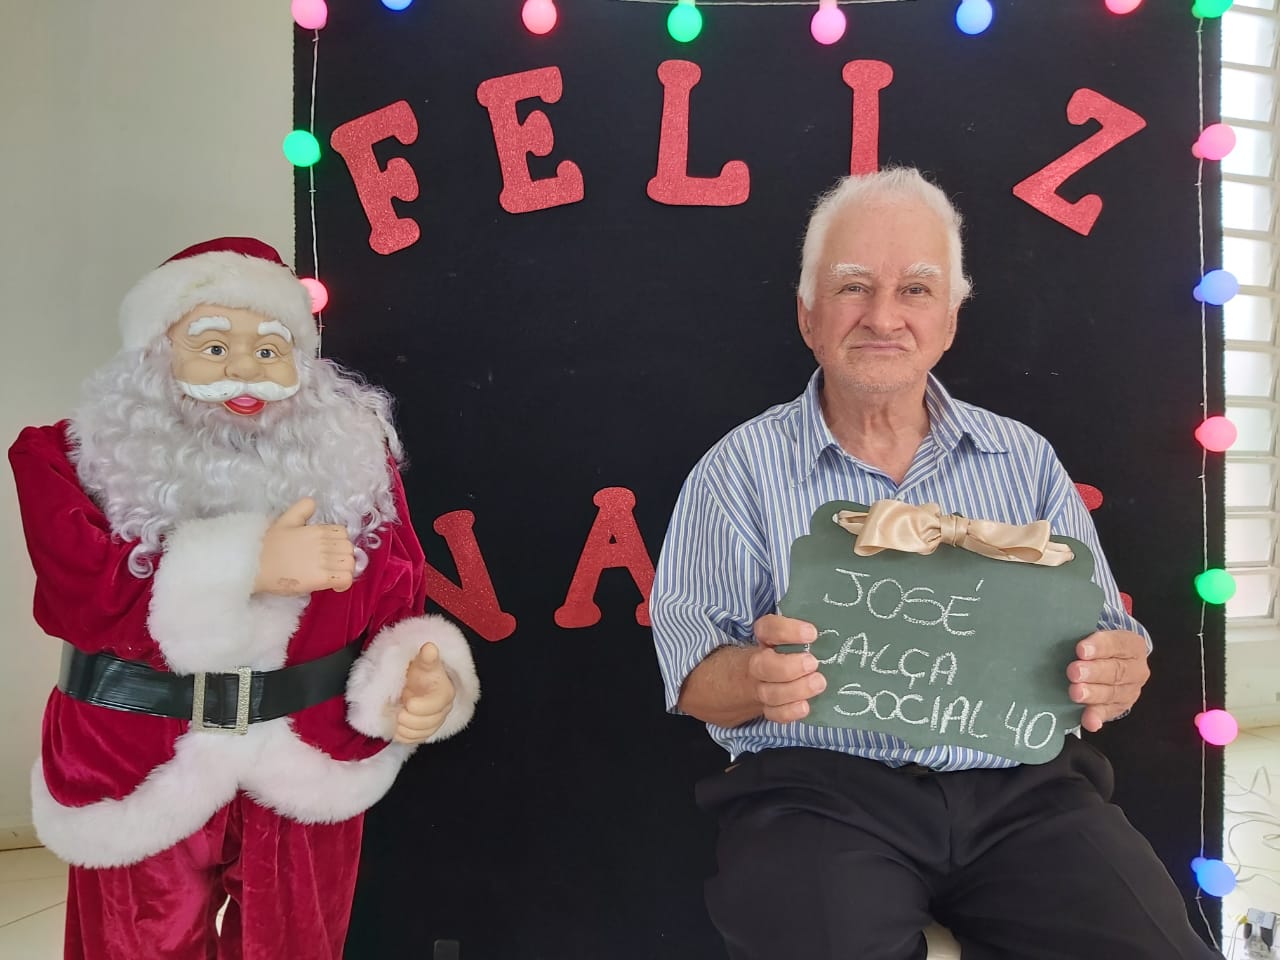 FELIZ
NA
JOSÉ
CALÇA
SOCIAL 40